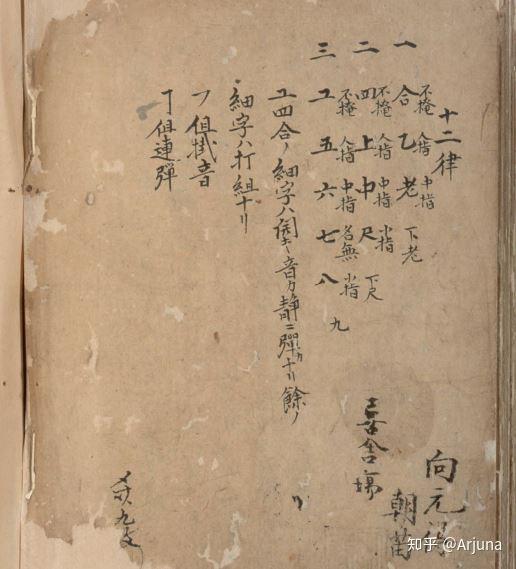 十二律
一 合不掩 乙人指 老中指 下老
二 四不掩 上人指 中中指 尺小指 下尺
三 工不掩 五人指 六中指 七名無 八小指 九
工四合ノ細字ハ開キ音カ静ニ彈ナリ餘ノ
細字ハ打組ナリ
フ但掛音
丁但連彈
吾舎場
向元
朝
九文
知乎 @Arjuna